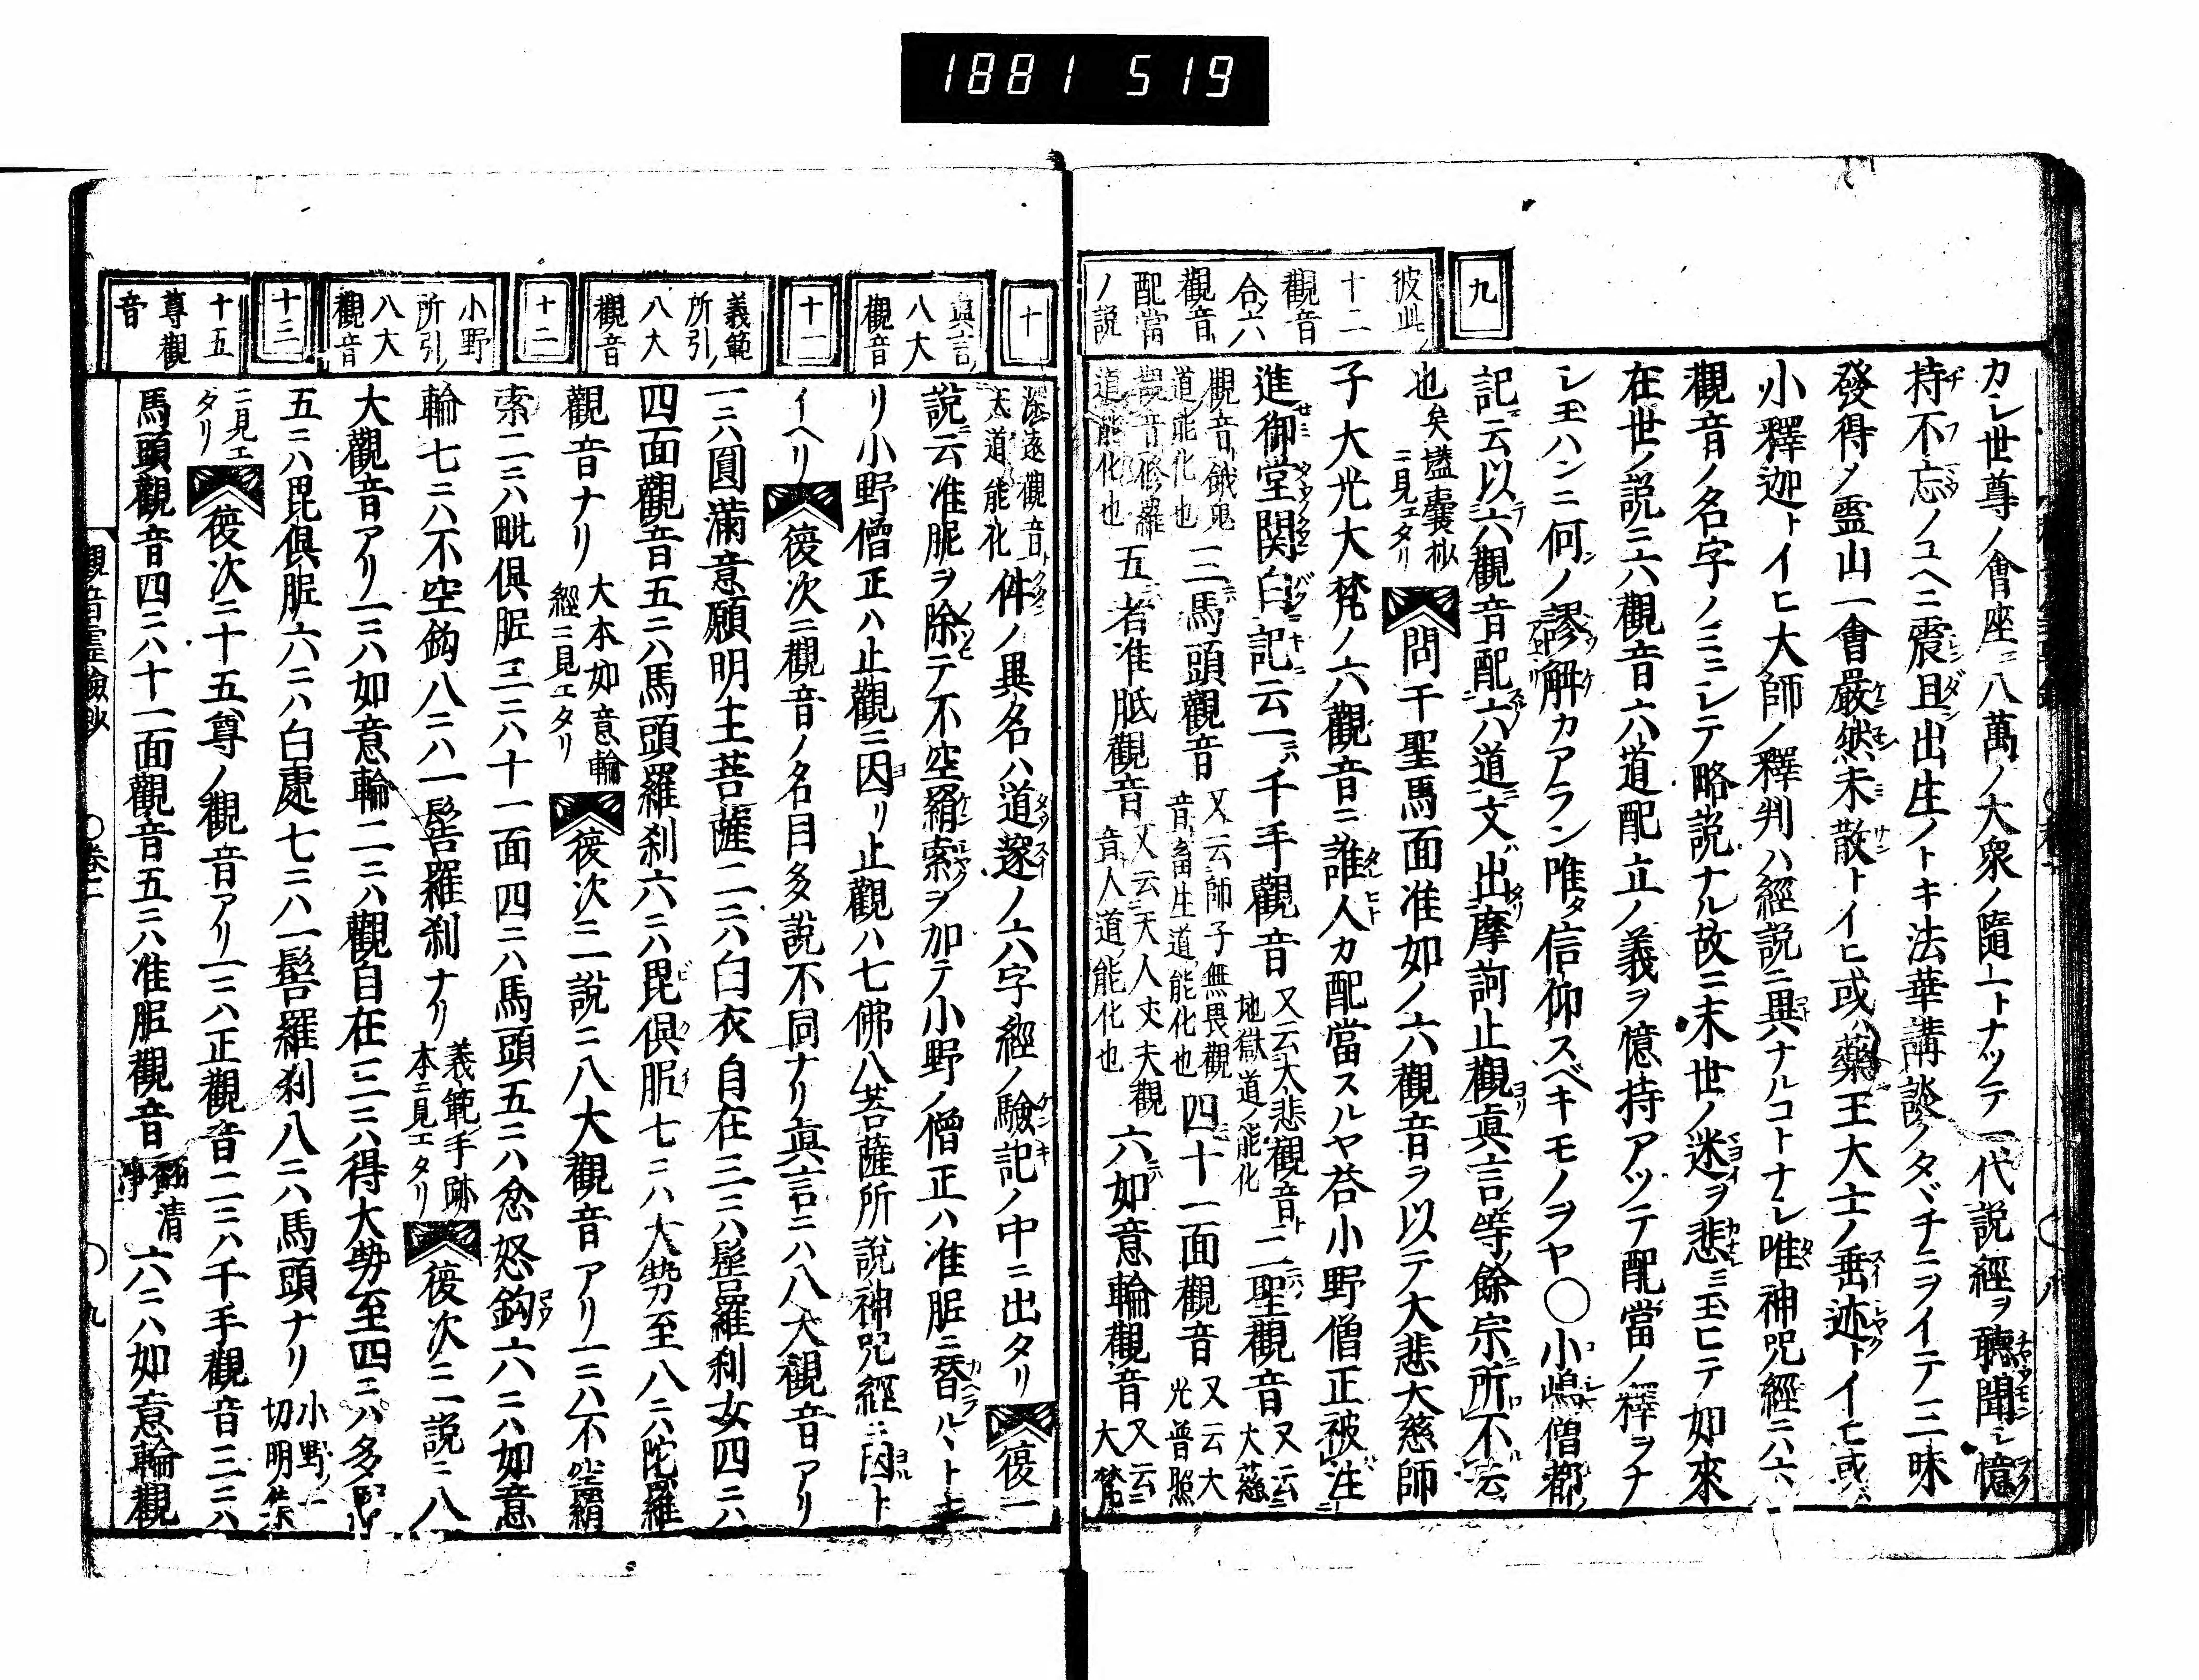 1881 519
九
彼此
十二
觀音
合六
觀音
配當
ノ説
カレ世尊ノ會座ニハ八萬ノ大衆ノ隨一トナツテ一代説經ヲ聽聞シ憶
持不忘ノユヘニ震旦出生ノトキ法華講談ノタヾチニヲイテ三昧
發得ノ霊山一會嚴然未散トイヒ或ハ藥王大士ノ垂迹トイヒ或ハ
小釋迦トイヒ大師ノ釋判ハ經説ニ異ナルコトナシ唯神呪經ニハ六
觀音ノ名字ノミニシテ略説ナル故ニ末世ノ迷ヲ悲ミ玉ヒテ如來
在世ノ説ニ六觀音六道配立ノ義ヲ憶持アツテ配當ノ釋ヲナ
シ玉ハンニ何ノ謬解カアラン唯タ信仰スベキモノヲヤ〇小嶋僧都ノ
記ニ云以六觀音配六道文出摩訶止觀眞言等餘宗所不云
也矣 壒嚢抄ニ見エタリ 問千聖馬面准如ノ六觀音ヲ以テ大悲大慈師
子大光大梵ノ六觀音ニ誰人カ配當スルヤ荅小野僧正被注
進御堂関白記云一ニハ千手觀音 又云大悲觀音ト地獄道ノ能化 二聖觀音 又云大慈
觀音餓鬼道能化也 三馬頭觀音 又云師子無畏觀音畜生道能化也 四十一面觀音 又云大光普照
觀音修羅道能化也 五者准胝觀音 又云天人丈夫觀音人道能化也 六如意輪觀音 又云大梵
十
眞言ノ
八大
觀音
十一
義範
所引ノ
八大
觀音
十二
小野
所引ノ
八大
觀音
十三
十五
尊觀
音
深遠觀音ト天道能化 件ノ異名ハ道邃ノ六字經ノ驗記ノ中ニ出タリ 復一
説云准胝ヲ除テ不空羂索ヲ加テ小野ノ僧正ハ准胝ニ替ルト
リ小野僧正ハ止觀ニ因リ止觀ハ七佛八菩薩所説神呪經ニ因ト
イヘリ 復次ニ觀音ノ名目多説不同ナリ眞言ニハ八大觀音アリ
一ニハ圓滿意願明王菩薩二ニハ白衣自在三ニハ髻羅刹女四ニハ
四面觀音五ニハ馬頭羅刹六ニハ毘倶胝七ニハ大勢至八ニハ陀羅
觀音ナリ 大本如意輪經ニ見エタリ 復次ニ一説ニ八大觀音アリ一ニハ不空羂
索二ニハ毗倶胝三ニハ十一面四ニハ馬頭五ニハ忿怒鈎六ニハ如意
輪七ニハ不空鈎八ニハ一髻羅刹ナリ 義範手跡本ニ見エタリ 復次ニ一説ニ八
大觀音アリ一ニハ如意輪二ニハ觀自在三ニハ得大勢至四ニハ多羅
五ニハ毘倶胝六ニハ白處七ニハ一髻羅刹八ニハ馬頭ナリ 小野ノ一切明集
ニ見エタリ 復次ニ十五尊ノ觀音アリ一ニハ正觀音二ニハ千手觀音三ニハ
馬頭觀音四ニハ十一面觀音五ニハ准胝觀音 清淨 六ニハ如意輪觀
觀音霊驗抄 〇卷二 〇九